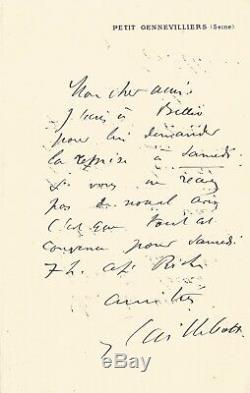 PETIT GENNEVILLIERS (Seine)
Mon cher ami
J'écris à Bellio
pour lui demander
la remise à Samedi
Si vous ne recevez
pas de nouvel avis
C'est que tout est
convenu pour Samedi
7 h. café Riche
amitiés
G. Caillebotte